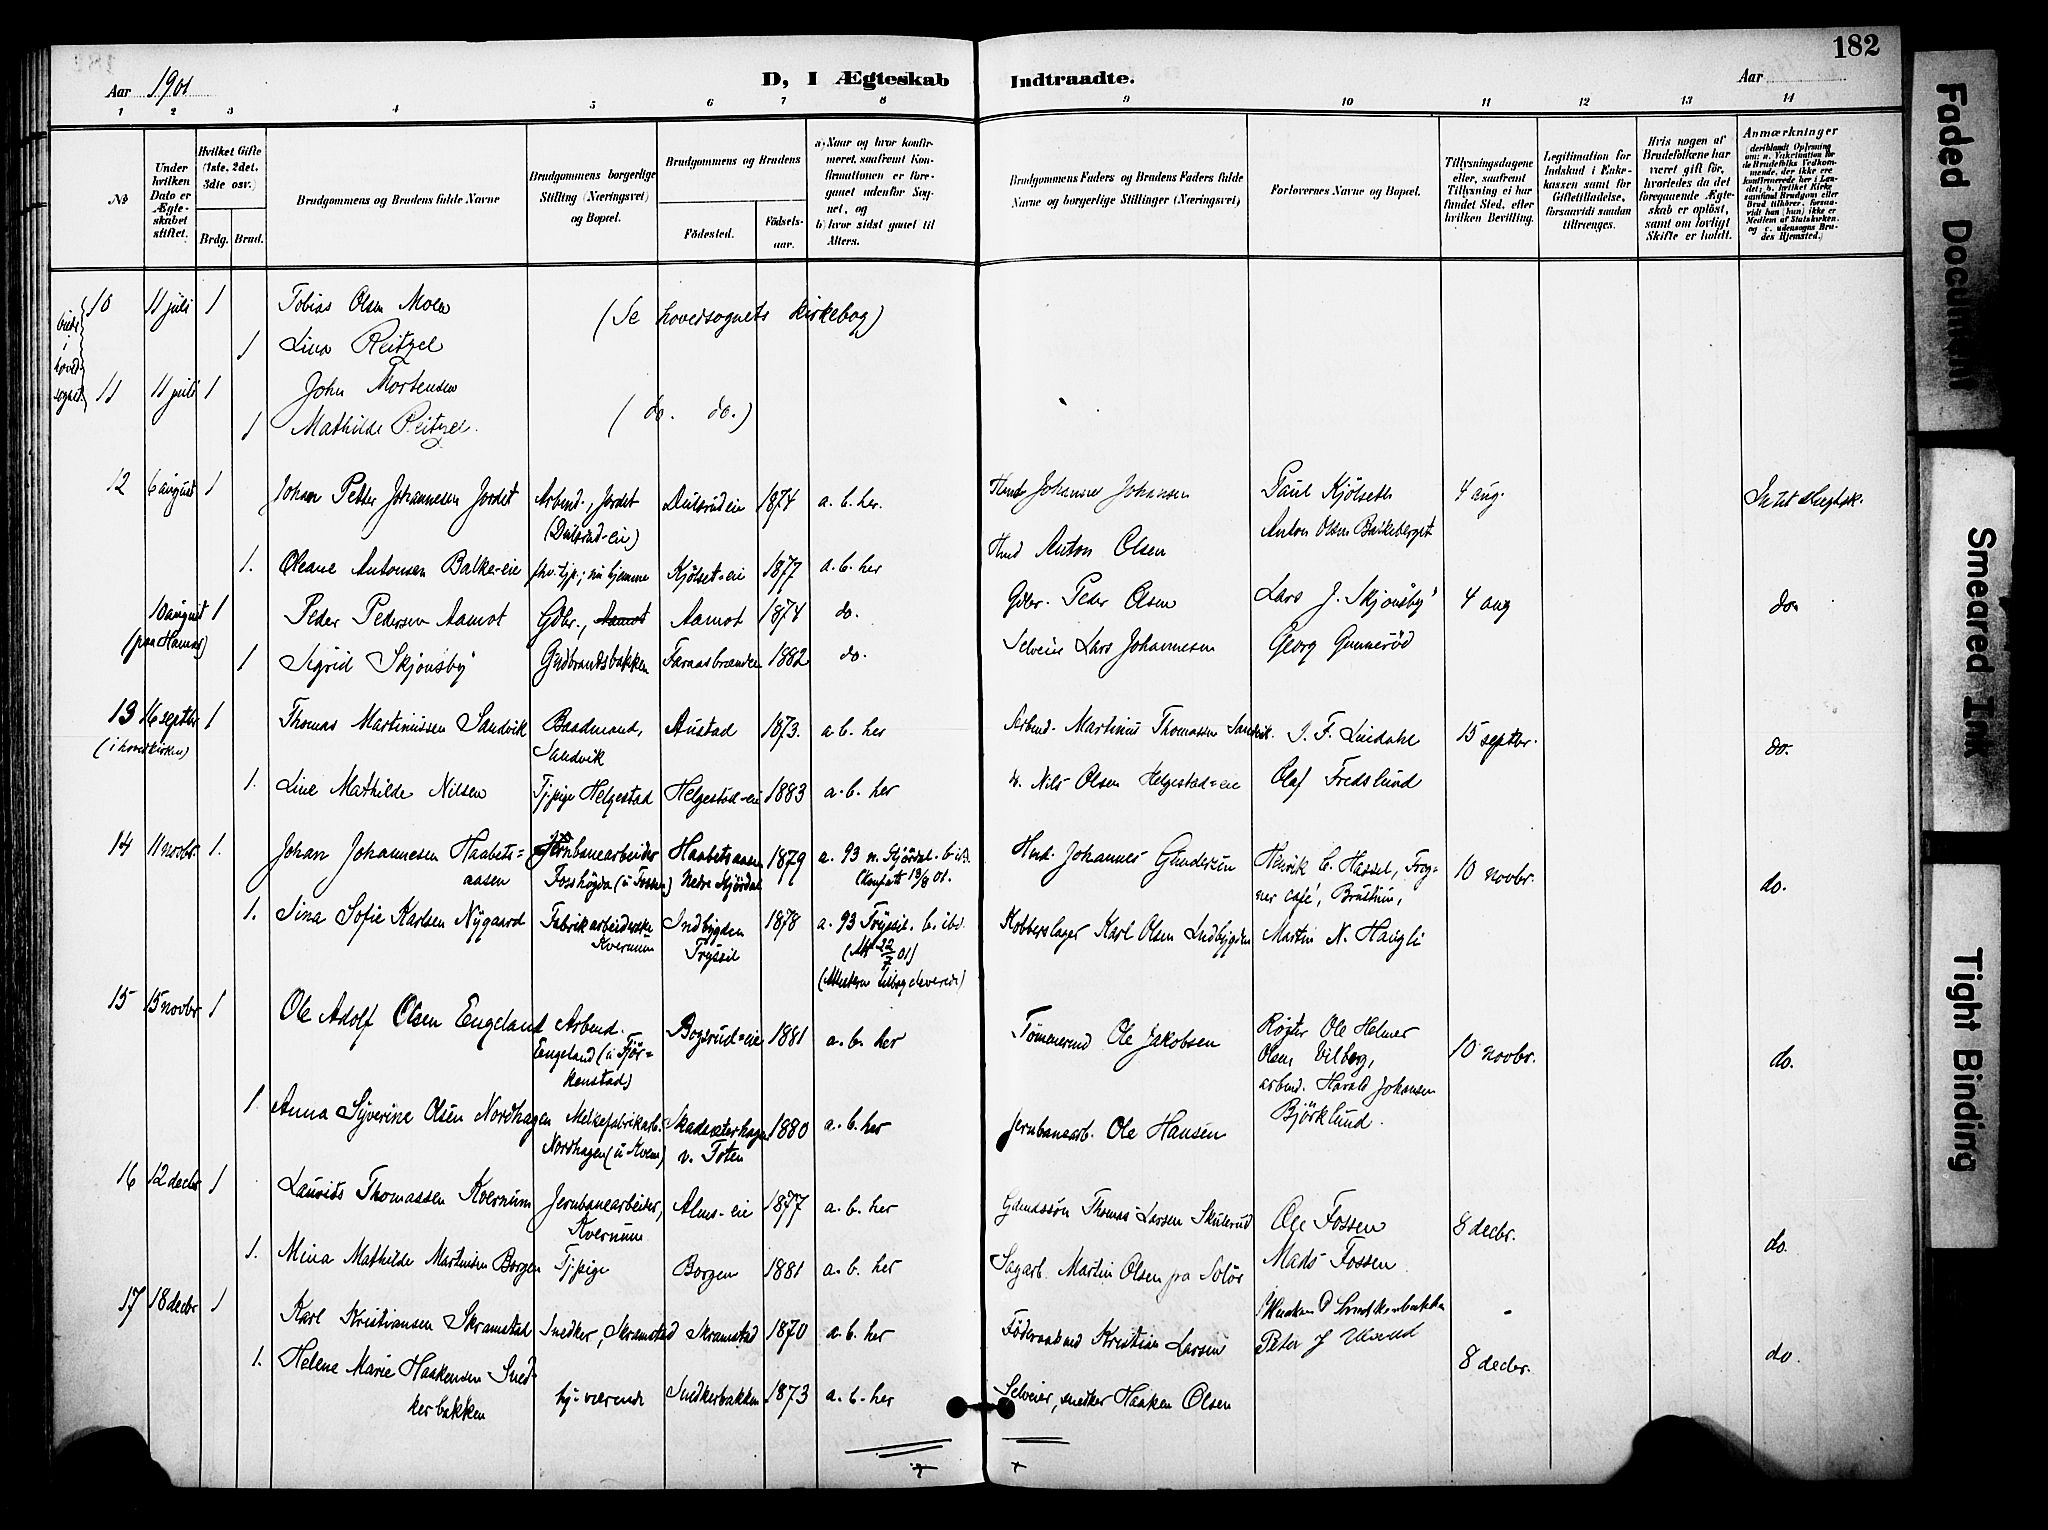 182
Aar 1901 D, I Ægteskab Indtraadte. Aar
1 2 3 4 5 6 7 8 9 10 11 12 13 14
No
Under hvilken Dato er Ægteskabet stiftet.
Hvilket Gifte (1ste, 2det, 3die osv.)
Brdg. Brud.
Brudgommens og Brudens fulde Navne
Brudgommens borgerlige Stilling (Næringsvei) og Bopæl.
Brudgommens og Brudens
Fødested. Fødselsaar.
a) Naar og hvor konfirmeret, saafremt Konfirmationen er foregaaet udenfor Sognet, og
b) hvor sidst gaaet til Alters.
Brudgommens Faders og Brudens Faders fulde Navne og borgerlige Stillinger (Næringsvei)
Forlovernes Navne og Bopæl.
Tillysningsdagene eller, saafremt Tillysning ei har fundet Sted, efter hvilken Bevilling.
Legitimation for Indskud i Enkekassen samt for Giftetilladelse, forsaavidt saadan tiltrænges.
Hvis nogen af Brudefolkene har været gift før, hvorledes da det foregaaende Ægteskab er opløst, samt om lovligt Skifte er holdt.
Anmærkninger (deriblandt Oplysning om: a. Vakcination for de Brudefolks Vedkommende, der ikke ere konfirmerede her i Landet; b. hvilket Kirkesamfund Brudgom eller Brud tilhører, forsaavidt han (hun) ikke er Medlem af Statskirken, og c. udensogns Brudes Hjemsted.)
10 11 juli 1 Tobias Olsen Moen (Se hovedsognets kirkebog)
1 Lina Reitzel
i hovedsognet
11 11 juli 1 John Mortensen
1 Mathilde Reitzel. (do. do.)
12 6 august 1 Johan Petter Johannesen Jordet Arbmd., Jordet (Dulsrud-eie) Dulsrudeie 1874 a. b. her. Johannes Johansen Paul Kjölseth 4 aug. Intet
Anton Olsen Balkeberget
1. Oleane Antonsen Balke-eie fhv. tjp.; nu hjemme Kjölset-eie 1877 a. b. her Anton Olsen
10 august 1 Peder Pedersen Aamot Gdbr., Aamot Aamot 1874 do. Gdbr. Peder Olsen Lars J. Skjönsby 4 aug do.
(paa Hamar)
1 Sigrid Skjönsby Gudbrandsbakken Faraasbrænden 1882 do. Selveier Lars Johannesen Georg Gunneröd
13 16 septbr. 1 Thomas Martiniussen Sandvik Baadmand, Sandvik Austad 1873. a. b. her Arbmd. Martinius Thomassen Sandvik. J. F. Lindahl 15 septbr. do.
(i hovedkirken)
1. Line Mathilde Nilsen Tjpige Helgestad Helgestad-eie 1883 a. b. her Nils Olsen Helgestad-eie Olaf Fredslund
14 11 novbr. 1. Johan Johannesen Haabetsaasen Jernbanearbeider Fosshögda (u Fossen) Haabetsaasen Nedre Stjördal 1879 a. 93 n. Stjördal. b. ibd. Johannes Gundersen Henrik C. Hassel, Frogner café, Brustun, 10 novbr. do.
1. Sina Sofie Karlsen Nygaard Fabrikarbeiderske Kvernum Indbygden Trysil 1878 a. 93 Trysil. b. ibd. (Att 22/7 01) Kobberslager Karl Olsen Indbygden Martin N. Haugli
15 15 novbr. 1 Ole Adolf Olsen Engeland Arbmd. Engeland (u Fjörkenstad) Bogsrud-eie 1881 a. b. her Tømmermd Ole Jakobsen Røgter Ole Helmer Olsen Vilberg, 10 novbr. do.
arbmd. Harald Johansen Björklund.
1 Anna Syverine Olsen Nordhagen Melkefabrikarb. Nordhagen (u Kvem) v. Toten 1880 a. b. her Jernbanearb. Ole Hansen
16 12 decbr 1 Laurits Thomassen Kvernum Jernbanearbeider, Kvernum Alms-eie 1877 a. b. her Thomas Larsen Skulerud Ole Fossen 8 decbr. do.
1. Mina Mathilde Martinsen Borgen Tjpige Borgen 1881 a. b. her Sagarb. Martin Olsen fra Solör Mads Fossen
17 18 decbr 1 Karl Kristiansen Skramstad Snedker, Skramstad Skramstad 1870 a. b. her Föderaadmd Kristian Larsen Haaken O Snedkerbakken
Peter J 8 decbr. do.
1. Helene Marie Haakensen Snedkerbakken hj-værende Snedkerbakken 1873 a. b. her Selveier, snedker Haaken Olsen
Faded Document
Smeared Ink
Tight Binding